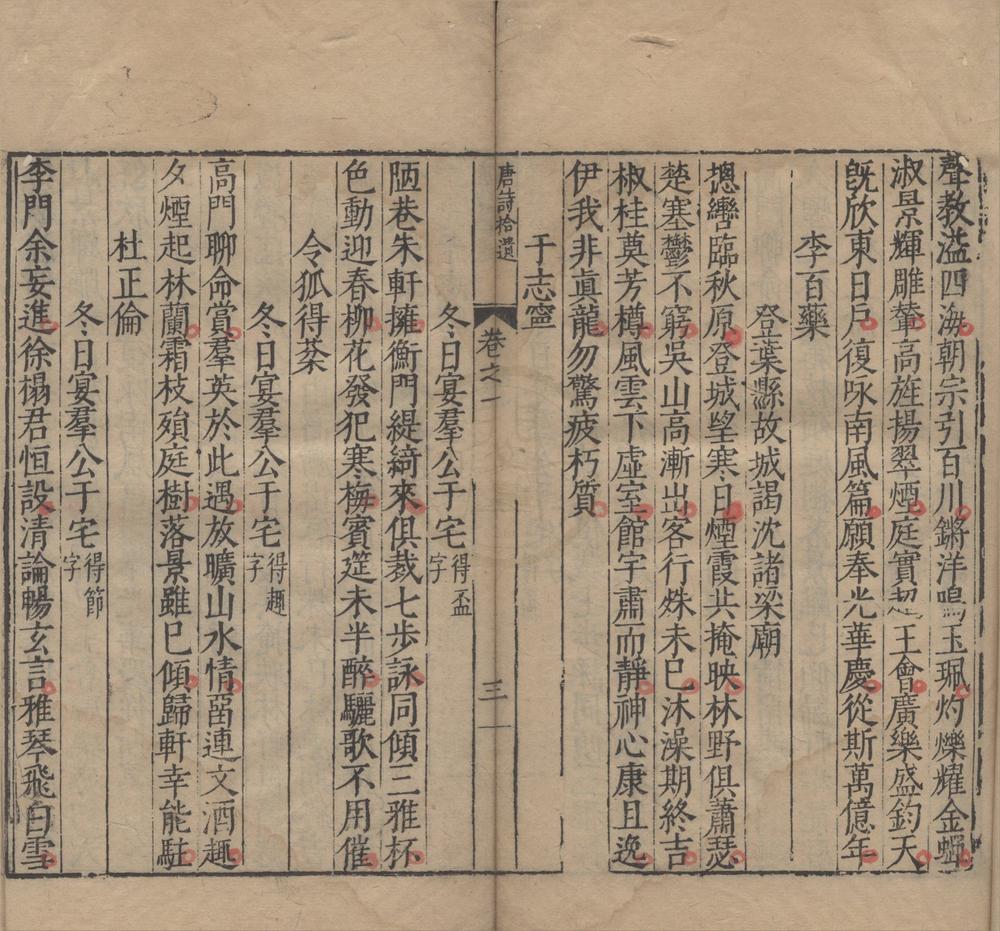 聲教溢四海朝宗引百川鏘洋鳴玉珮灼爍耀金蟬
淑景輝雕輦高旌揚翠煙庭實超王會廣樂盛鈞天
旣欣東日戶復咏南風篇願奉光華慶從斯萬億年
李百藥
登葉縣故城謁沈諸梁廟
摠轡臨秋原登城望寒日煙霞共掩映林野俱蕭瑟
楚塞鬱不窮吳山高漸出客行殊未已沐澡期終吉
椒桂奠芳樽風雲下虛室館宇肅而靜神心康且逸
伊我非眞龍勿驚疲朽質
于志寧
唐詩拾遺
卷之一
三
冬日宴羣公于宅得盃字
陋巷朱軒擁衡門緹綺來俱裁七步詠同傾三雅杯
色動迎春柳花發犯寒梅賓筵未半醉驪歌不用催
令狐得棻
冬日宴羣公于宅得趣字
高門聊命賞羣英於此遇放曠山水情畱連文酒趣
夕煙起林蘭霜枝殞庭樹落景雖已傾歸軒幸能駐
杜正倫
冬日宴羣公于宅得節字
李門余妄進徐榻君恒設清論暢玄言雅琴飛白雪